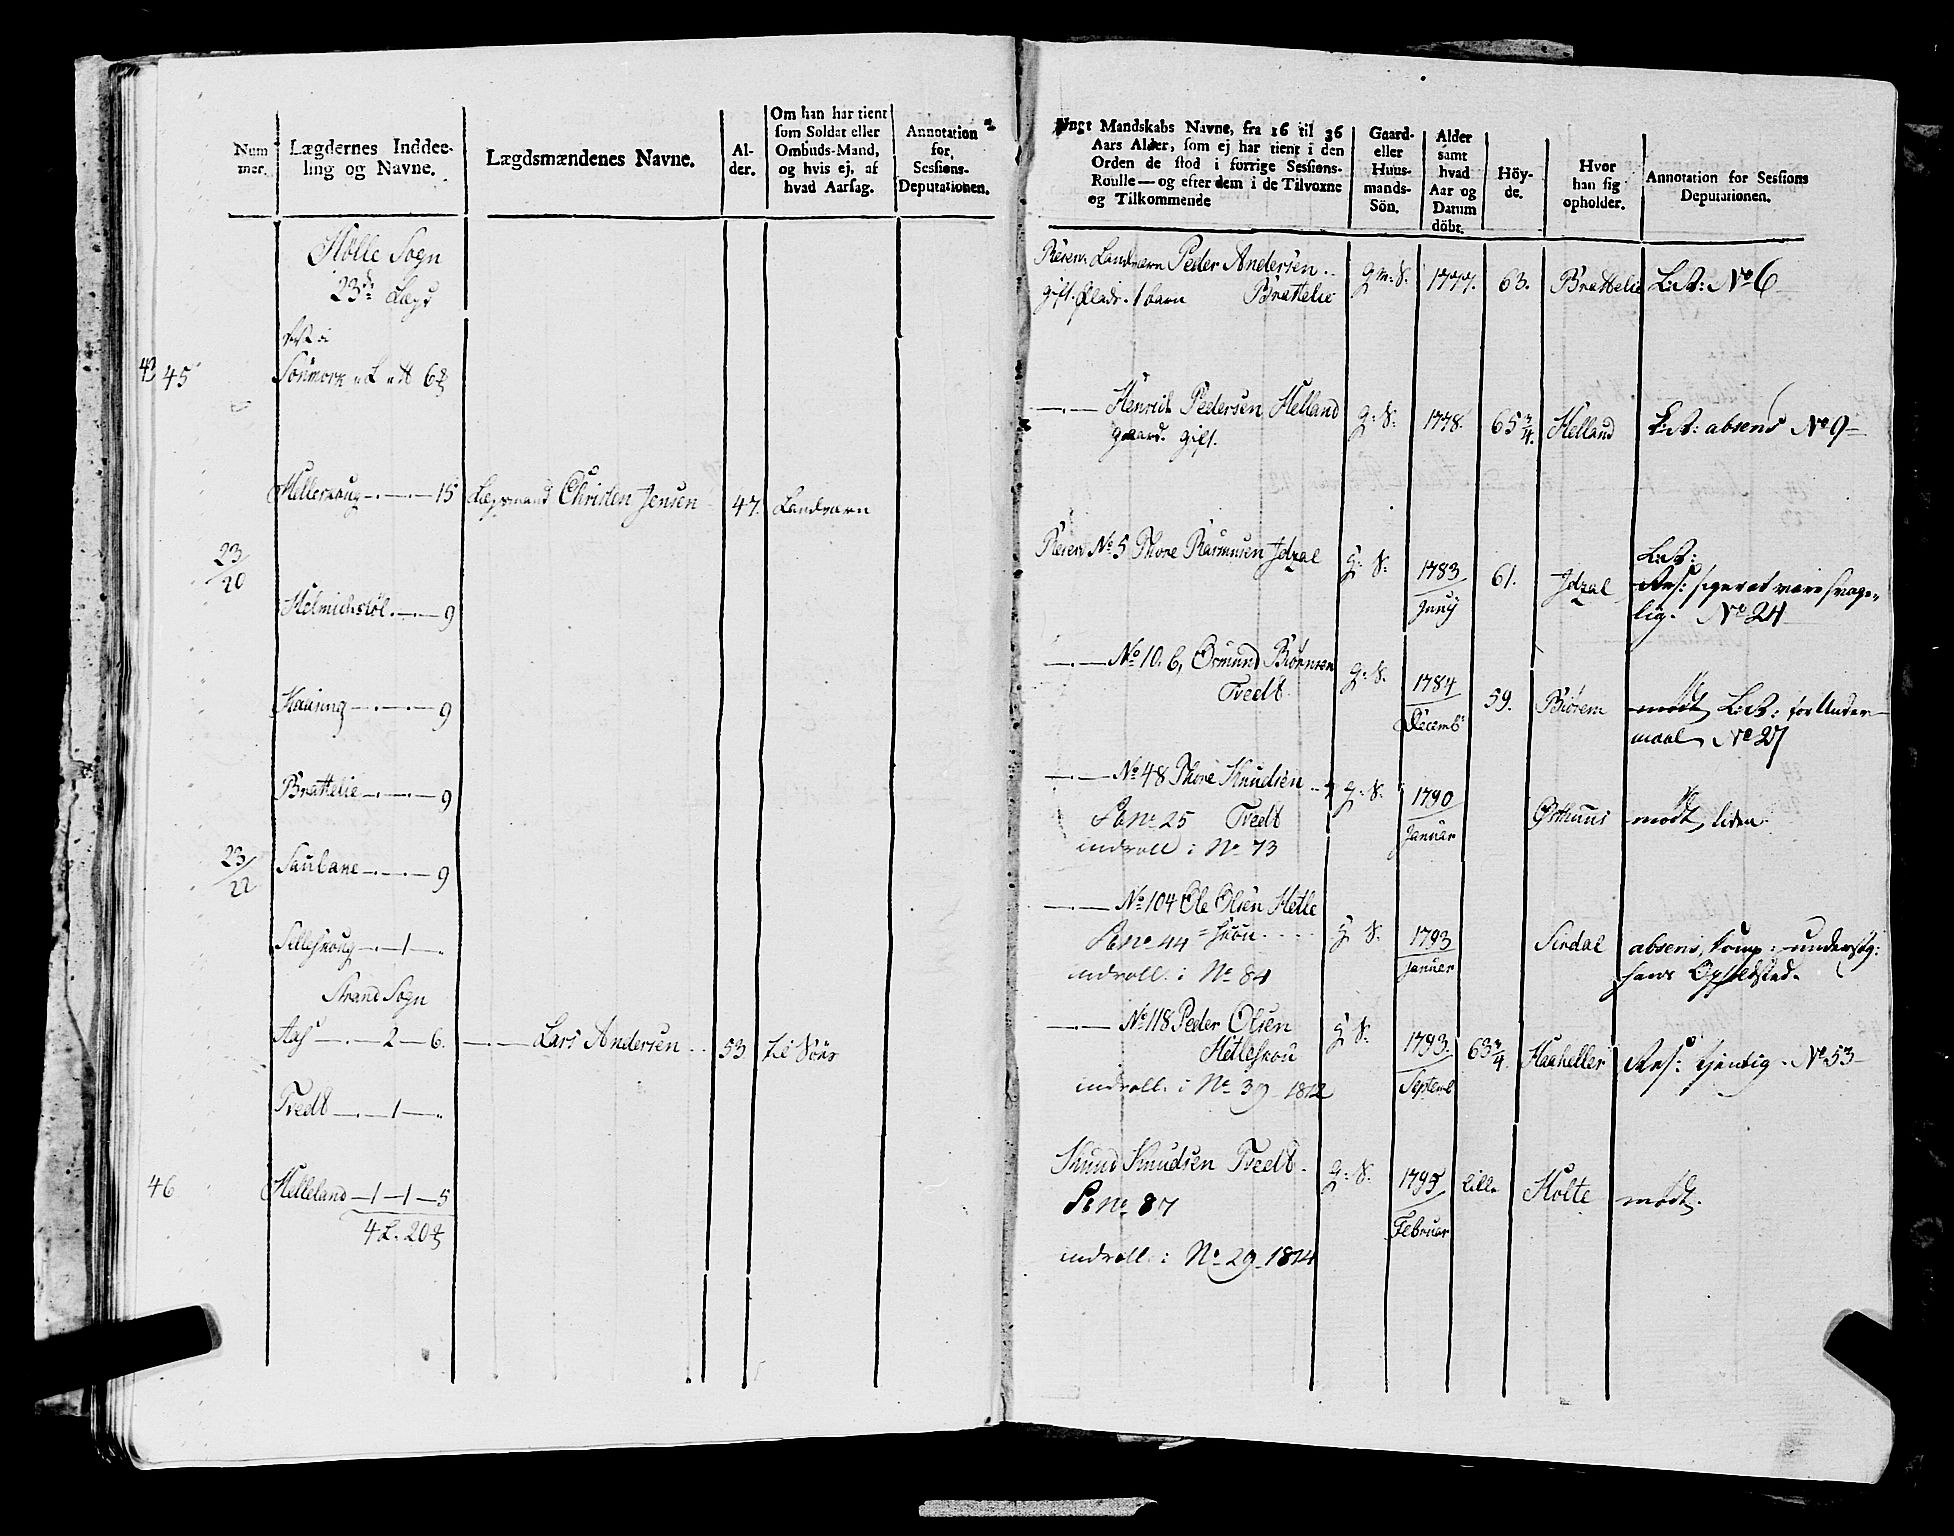 Num
mer.
Lægdernes Inddee-
ling og Navne.
Lægdsmændenes Navne.
Al-
der.
Om han har tient
som Soldat eller
Ombuds-Mand,
og hvis ej, af
hvad Aarsag.
Annotation
for
Sessions-
Deputationen.
Holle Sogn
23de Lægd
45
6
Hellerskoug 15 Lægsmand Christen Jensen 47. Landværn
23/20
Helmichstöl 9
Hauing 9
Brattelie 9
23/22
Saubane 9
Selleskoug 1
Strand Sogn
Aas 2 - 6. Lars Andersen 53
Tvedt 1
46
Helleland - 1 - 1 - 5
4 L. 20
Ungt Mandskabs Navne, fra 16 til 36
Aars Alder, som ej har tient i den
Orden de stod i forrige Sessions-
Roulle — og efter dem i de Tilvoxne
og Tilkommende
Gaard-
eller
Huus-
mands-
Sön.
Alder
samt
hvad
Aar og
Datum
döbt.
Höy-
de.
Hvor
han sig
opholder.
Annotation for Sessions
Deputationen.
Landværn Peder Andersen
gift. 1 barn Brattelie
g m: S. 1777. 63. Brattelie No 6
Henrich Pedersen Helland
gaard. gift.
g: S. 1778. 65 3/4. Helland absens No 9
Reserv No 5 Thore Rasmusen Idzal
g: S. 1783 Juny 61. Idzal
siger at være svage-
lig. No 24
No 10. 6, Osmund Biörnsen
Tvedt
g: S. 1784 Decembr 59. Biörem
mödt for Under-
maal No 27
No 48 Thore Knudsen
No 25 Tvedt
indroll: i No 73
g: S. 1790 Januar Østhuus mödt, liden
No 104 Ole Olsen Hetle
= skou
No 44
indroll. i No 84
g: S. 1793 Januar Sirdal absens,
hans Opholdsted.
No 118 Peder Olsen
Hetleskou
indroll. i No 39 1812
g: S. 1793. Septemb 63 3/4. Haaheller tjenlig. No 53
Knud Knudsen Tvedt
No 87
indroll. i No 29 1814
g: S. 1795 Februar lille Holte mödt.